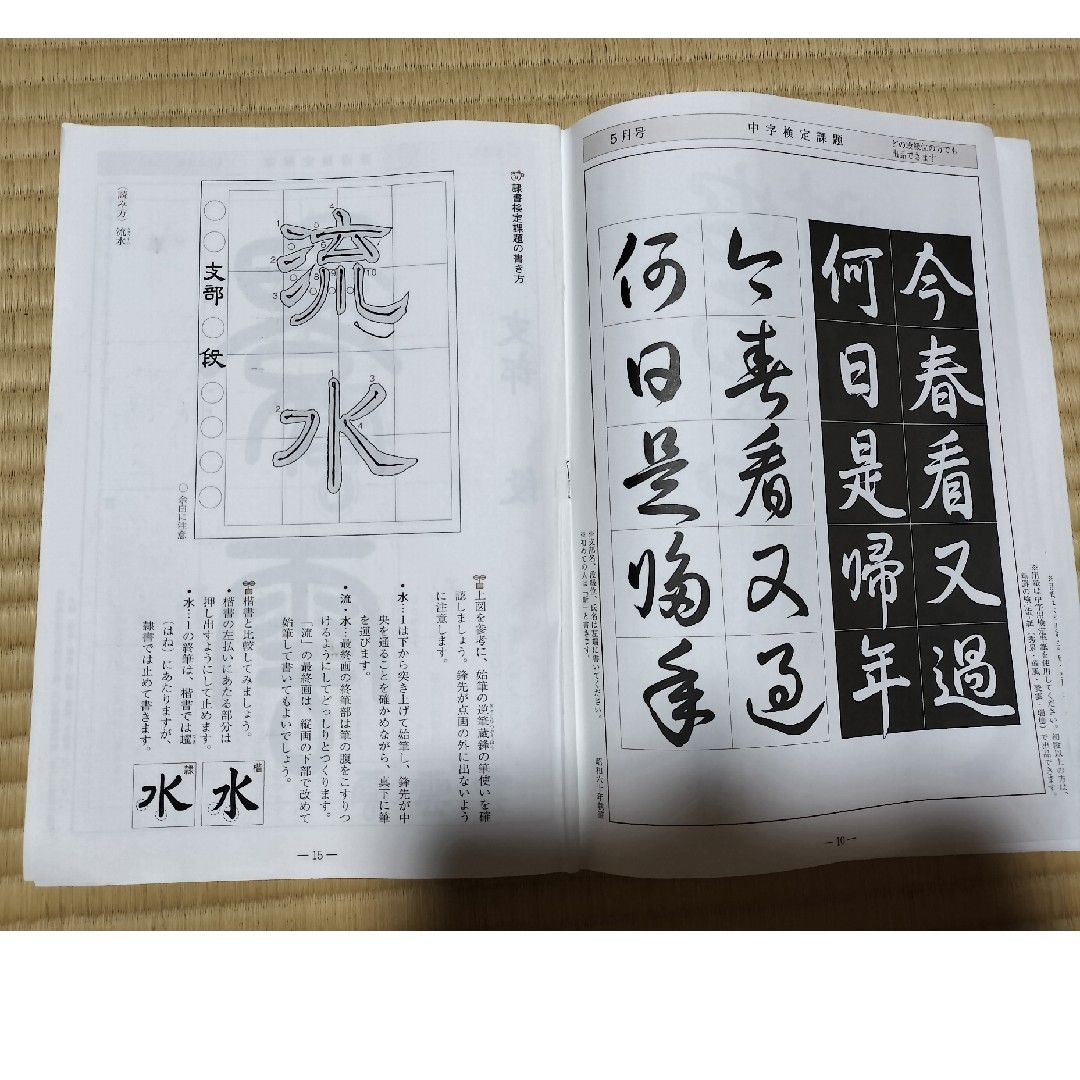 5月号
中字検定課題
どの段級位の方でも
出品できます
今春看又過
何日是帰年
今春看又過
何日是帰年
※支部名、段級位、氏名は左端に書いてください。
※初めての人は「新」と書きます。
— 16 —
隷書検定課題の書き方
流水
支部
段
○余白に注意
(読み方) 流水
上図を参考に、始筆の逆筆蔵鋒の筆使いを確
認しましょう。鋒先が点画の外に出ないよう
に注意します。
・水…1は下から突き上げて始筆し、鋒先が中
央を通ることを確かめながら、真下に筆
を運びます。
・流・水…最終画の終筆部は筆の腹をこすりつ
けるようにしてどっしりとつくります。
「流」の最終画は、縦画の下部で改めて
始筆して書いてもよいでしょう。
楷書と比較してみましょう。
・楷書の左払いにあたる部分は
押し出すようにして止めます。
・水…1の終筆は、楷書では趯
(はね)にあたりますが、
隷書では止めて書きます。
楷
水
隷
水
— 15 —